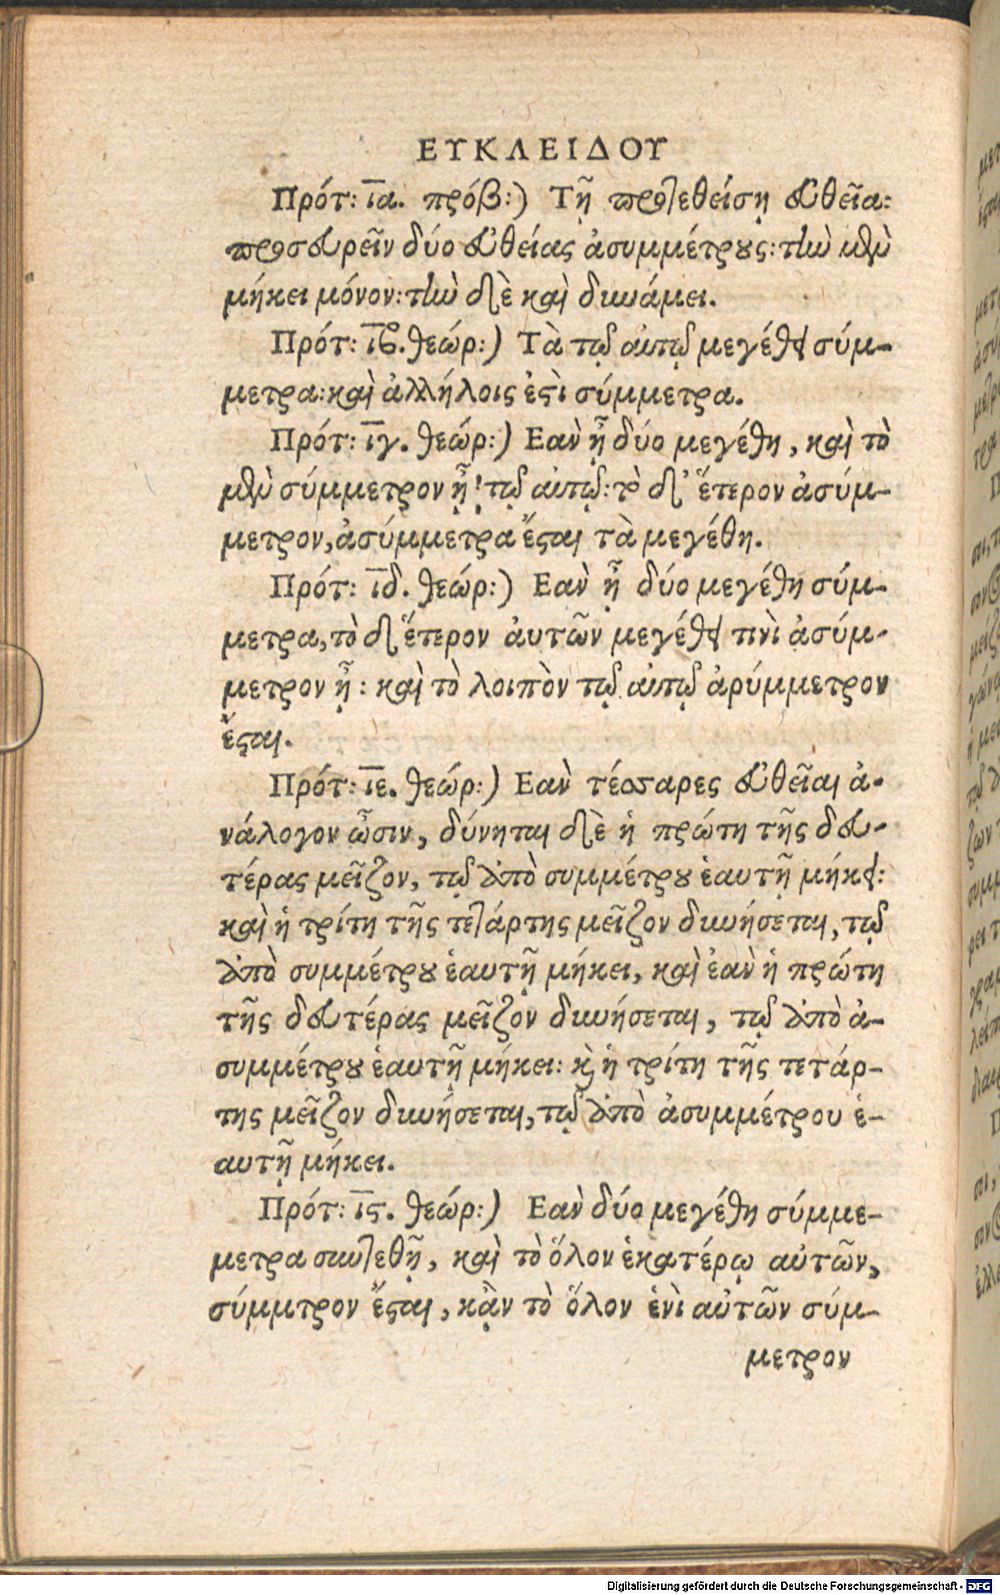 ΕΥΚΛΕΙΔΟΥ
Πρότ: ια. πρόβ:) Τῇ προτεθείσῃ εὐθεῖα:
προσευρεῖν δύο εὐθείας ἀσυμμέτρους: τὴν μὲν
μήκει μόνον: τὴν δὲ καὶ δυνάμει.
Πρότ: ιβ. θεώρ:) Τὰ τῷ αὐτῷ μεγέθει σύμ-
μετρα: καὶ ἀλλήλοις ἐστὶ σύμμετρα.
Πρότ: ιγ. θεώρ:) Εαν ᾖ δύο μεγέθη, καὶ τὸ
μὲν σύμμετρον ᾖ τῷ αὐτῷ: τὸ δ' ἕτερον ἀσύμ-
μετρον, ἀσύμμετρα ἔσται τὰ μεγέθη.
Πρότ: ιδ. θεώρ:) Εαν ᾖ δύο μεγέθη σύμ-
μετρα, τὸ δ' ἕτερον ἀυτῶν μεγέθει τινὶ ἀσύμ-
μετρον ᾖ: καὶ τὸ λοιπὸν τῷ αὐτῷ ἀρύμμετρον
ἔσται.
Πρότ: ιε. θεώρ:) Εαν τέσσαρες εὐθεῖαι ἀ-
νάλογον ὦσιν, δύνηται δὲ ἡ πρώτη τῆς δευ-
τέρας μεῖζον, τῷ ἀπὸ συμμέτρου ἑαυτῇ μήκει:
καὶ ἡ τρίτη τῆς τετάρτης μεῖζον δυνήσεται, τῷ
ἀπὸ συμμέτρου ἑαυτῇ μήκει, καὶ ἐὰν ἡ πρώτη
τῆς δευτέρας μεῖζον δυνήσεται, τῷ ἀπὸ ἀ-
συμμέτρου ἑαυτῇ μήκει: καὶ ἡ τρίτη τῆς τετάρ-
της μεῖζον δυνήσεται, τῷ ἀπὸ ἀσυμμέτρου ἑ-
αυτῇ μήκει.
Πρότ: ις. θεώρ:) Εαν δύο μεγέθη σύμμε-
μετρα συντεθῇ, καὶ τὸ ὅλον ἑκατέρῳ αὐτῶν,
σύμμτρον ἔσται, κἂν τὸ ὅλον ἑνὶ αὐτῶν σύμ-
μετρον
Digitalisierung gefördert durch die Deutsche Forschungsgemeinschaft - DFG